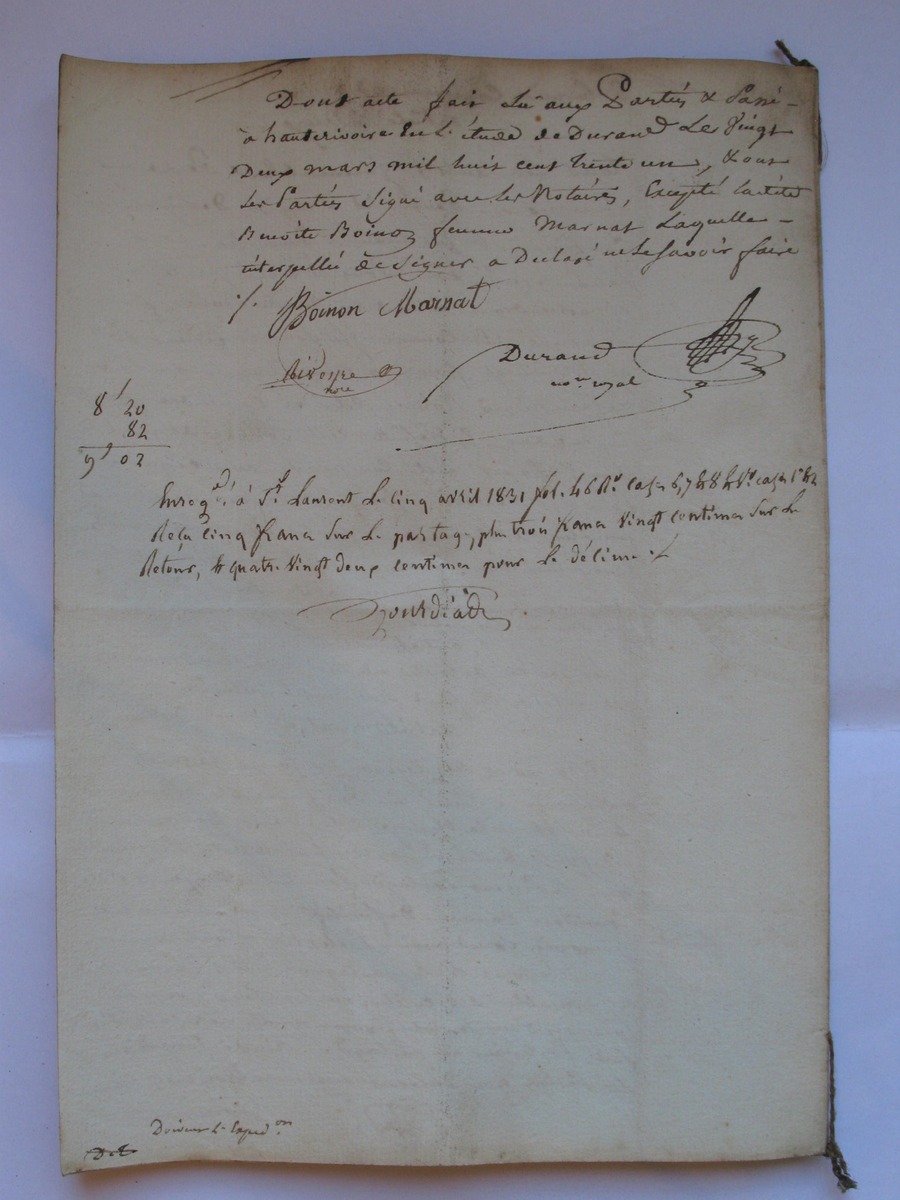 Dont acte fait Lu aux Parties & Passé
à hauterivoire En L'étude de Durand Le Vingt
Deux mars mil huit cent trente un, & ont
Les Parties Signé avec Les Notaires, Excepté Ladite
Benoite Boinon femme Marnat Laquelle
interpellée de Signer a Declaré ne Le Savoir faire
Boinon Marnat
Durand
nore
nore royal
8f 20
82
9f 02
Enregé à St Laurent Le cinq avril 1831 fol. 46 Ro Cases 6, 7 & 8 & Vo case 1 & 2
Reçu Cinq francs Sur Le partage, plus trois francs Vingt Centimes Sur Le
Retour, & quatre Vingt deux centimes pour Le décime
Doivent L'Expedon